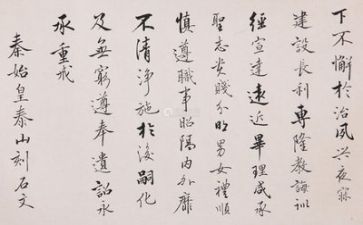 下不懈於治夙兴夜寐
建設長利專隆教誨訓
經宣達遠近畢理咸承
聖志貴賤分明男女禮順
慎遵職事昭隔内外靡
不清净施於後嗣化
及無窮遵奉遺詔永
承重戒
秦始皇泰山刻石文